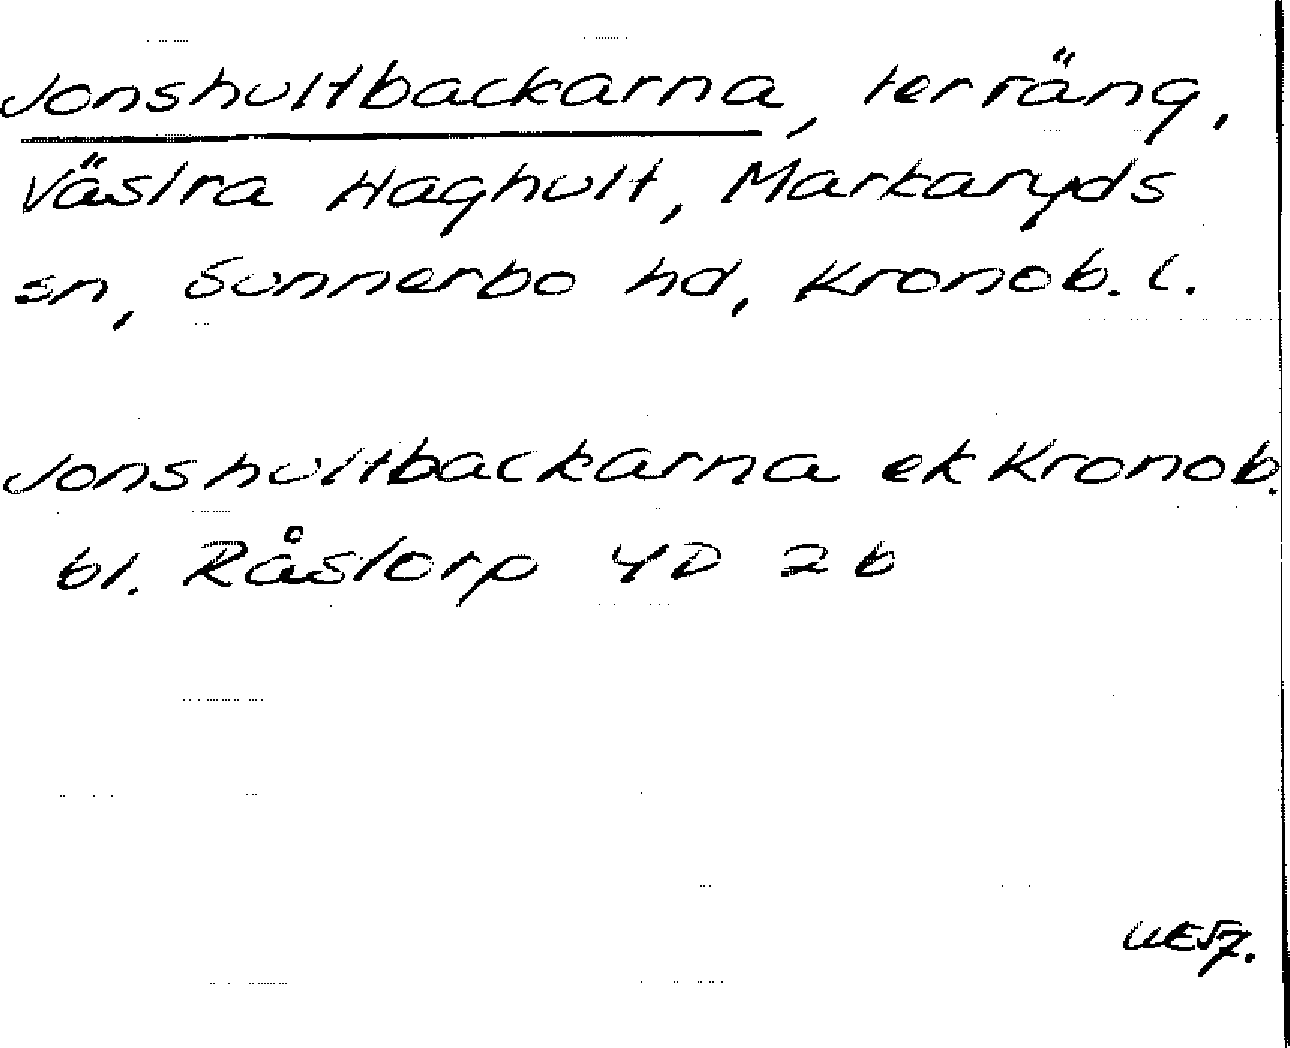 Jonshultbackarna, terräng,
Västra Haghult, Markaryds
sn, Sunnerbo hd, Kronob. l.
Jonshultbackarna ek Kronob.
bl. Råstorp 4D 2b